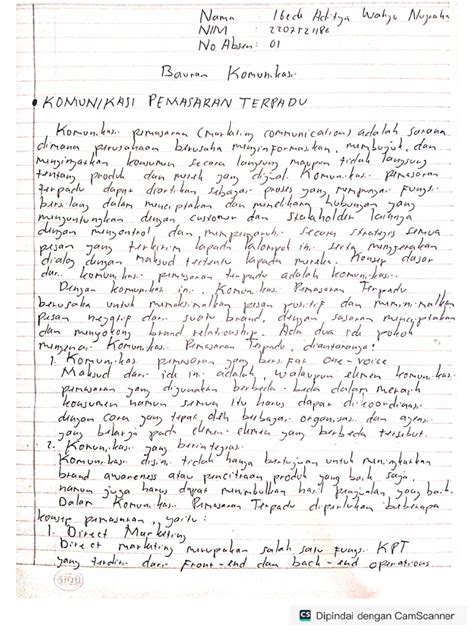 Nama : I Gede Aditya Wahyu Nugraha
NIM : 2207521186
No Absen : 01
Bauran Komunikasi
• KOMUNIKASI PEMASARAN TERPADU
Komunikasi pemasaran (marketing communication) adalah sarana
dimana perusahaan berusaha menginformasikan, membujuk, dan
mengingatkan konsumen secara langsung maupun tidak langsung
tentang produk dan merek yang dijual. Komunikasi pemasaran
terpadu dapat diartikan sebagai proses yang mempunyai fungsi
bersilang dalam menciptakan dan memelihara hubungan yang
menguntungkan dengan customer dan stakeholder lainnya
dengan mengontrol dan mempengaruhi secara strategis semua
pesan yang terkirim kepada kelompok ini serta mengenakan
dialog dengan maksud tertentu kepada mereka. Konsep dasar
dari komunikasi pemasaran terpadu adalah komunikasi.
Dengan komunikasi ini, Komunikasi Pemasaran Terpadu
berusaha untuk memaksimalkan pesan positif dan meminimalkan
pesan negatif dari suatu brand, dengan sasaran menciptakan
dan menyokong brand relationship. Ada dua ide pokok
mengenai Komunikasi Pemasaran Terpadu, diantaranya:
1. Komunikasi pemasaran yang bersifat one-voice
Maksud dari ide ini adalah, walaupun elemen komunikasi
pemasaran yang digunakan berbeda-beda dalam meraih
konsumen namun semua itu harus dapat dikoordinasi
dengan cara yang tepat, oleh berbagai organisasi dan agensi
yang bekerja pada elemen-elemen yang berbeda tersebut.
2. Komunikasi yang berintegrasi
Komunikasi disini tidak hanya bertujuan untuk meningkatkan
brand awareness atau pencitraan produk yang baik saja,
namun juga harus dapat menimbulkan hasil penjualan yang baik.
Dalam Komunikasi Pemasaran Terpadu diperlukan beberapa
konsep pemasaran, yaitu:
1. Direct Marketing
Direct marketing merupakan salah satu fungsi KPT
yang terdiri dari front-end dan back-end operations
CS Dipindai dengan CamScanner